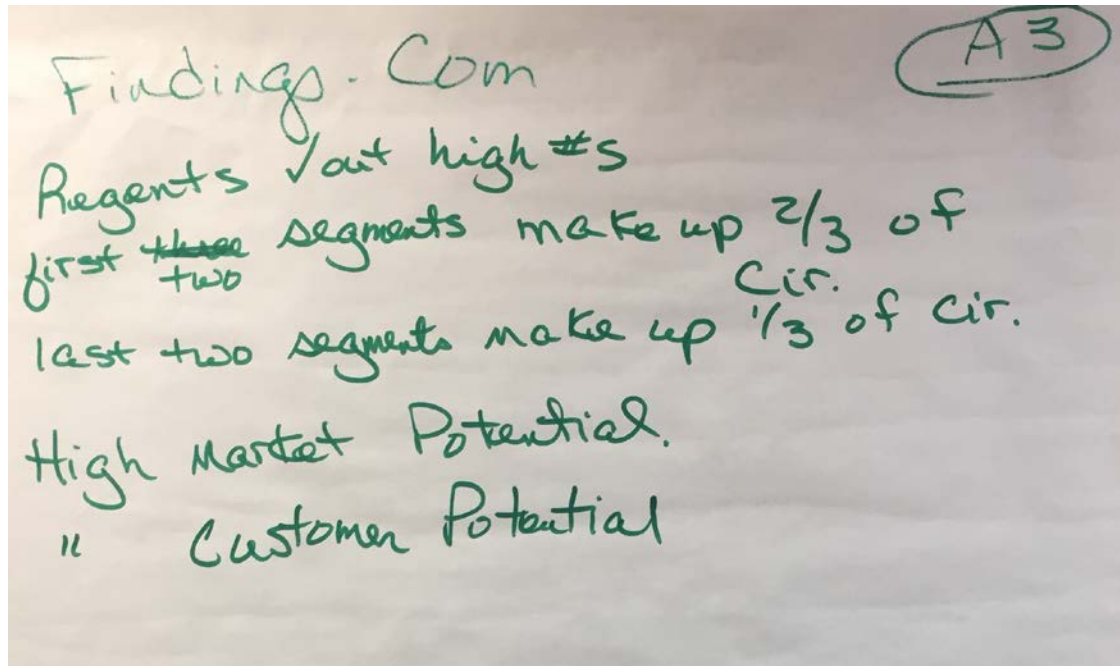 Findings. Com
A 3
Regents √out high #s
first three segments make up 2/3 of
two
Cir.
last two segments make up 1/3 of cir.
High Market Potential.
" Customer Potential